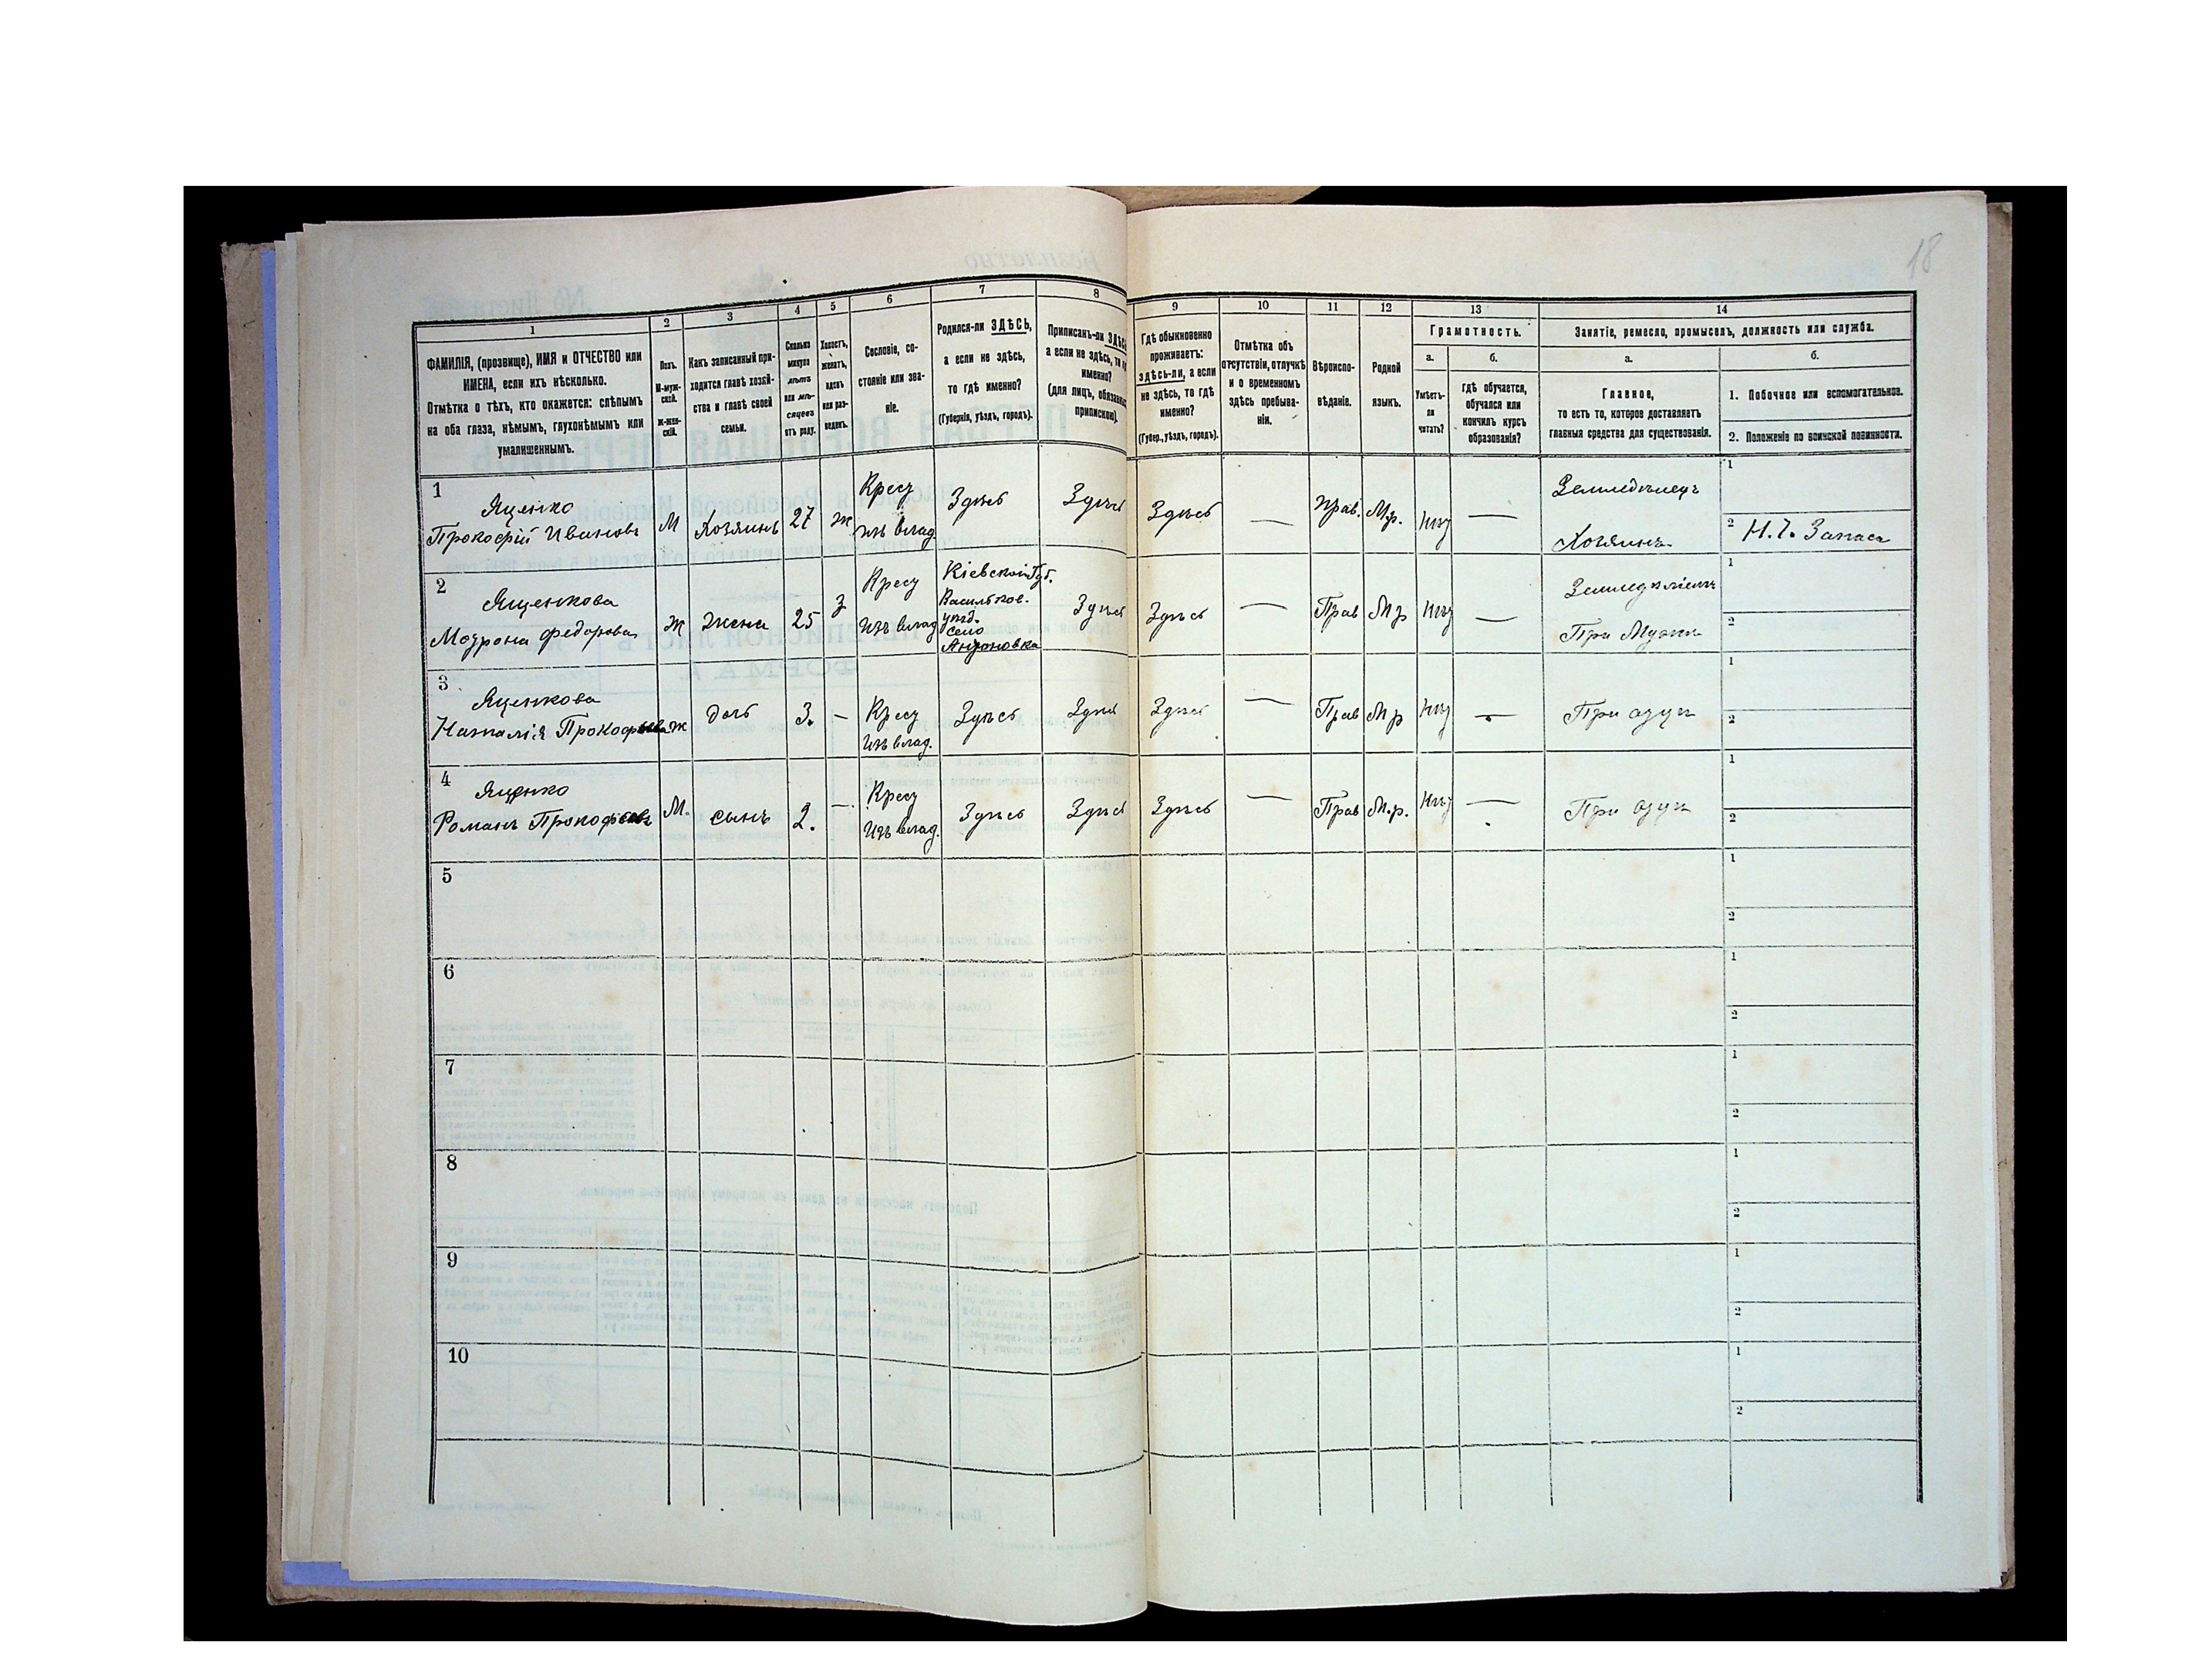 18
1 2 3 4 5 6 7 8 9 10 11 12 13 14
ФАМИЛІЯ, (прозвище), ИМЯ и ОТЧЕСТВО или
ИМЕНА, если ихъ нѣсколько.
Отмѣтка о тѣхъ, кто окажется: слѣпымъ
на оба глаза, нѣмымъ, глухонѣмымъ или
умалишеннымъ.
Полъ.
М-муж-
ской.
Ж-жен-
скій.
Какъ записанный при-
ходится главѣ хозяй-
ства и главѣ своей
семьи.
Сколько
минуло
лѣтъ
или мѣ-
сяцевъ
отъ роду.
Холостъ,
женатъ,
вдовъ
или раз-
веденъ.
Сословіе, со-
стояніе или зва-
ніе.
Родился-ли ЗДѢСЬ,
а если не здѣсь,
то гдѣ именно?
(Губернія, уѣздъ, городъ).
Приписанъ-ли ЗДѢСЬ
а если не здѣсь, то
именно?
(для лицъ,
припискою).
Гдѣ обыкновенно
проживаетъ:
здѣсь-ли, а если
не здѣсь, то гдѣ
именно?
(Губер., уѣздъ, городъ).
Отмѣтка объ
отсутствіи, отлучкѣ
и о временномъ
здѣсь пребыва-
ніи.
Вѣроиспо-
вѣданіе.
Родной
языкъ.
Грамотность.
а.
Умѣетъ-
ли
читать?
б.
гдѣ обучается,
обучался или
кончилъ курсъ
образованія?
Занятіе, ремесло, промыселъ, должность или служба.
а.
Главное,
то есть то, которое доставляетъ
главныя средства для существованія.
б.
1. Побочное или вспомогательное.
2. Положеніе по воинской повинности.
1
Яценко
Прокофій Ивановъ
М Хозяинъ 27 Ж
Крест
изъ влад
Здѣсь Здѣсь Здѣсь — Прав. М.р. Нѣт —
Земледѣлецъ
Хозяинъ
1
2 Н. Ч. Запаса
2
Яценкова
Федорова
Ж Жена 25 З
Крест
Изъ влад
Кіевской Губ.
Васильков.
уѣзд.
село
Здѣсь Здѣсь — Прав М р Нѣт —
При Мужѣ
1
2
3
Яценкова
Наталія Прокофьева
Ж дочь 3. —
Крест
Изъ влад.
Здѣсь Здѣсь Здѣсь — Прав М р Нѣт —
При отцѣ
1
2
4
Яценко
Романъ Прокофьевъ
М. сынъ 2. —
Крест
Изъ влад.
Здѣсь Здѣсь Здѣсь — Прав М.р. Нѣт —
При отцѣ
1
2
5
1
2
6
1
2
7
1
2
8
1
2
9
1
2
10
1
2